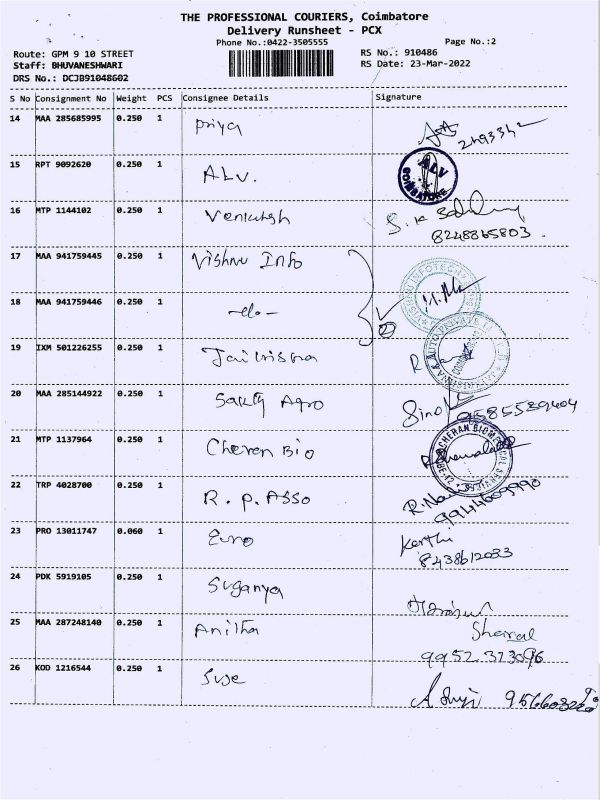 THE PROFESSIONAL COURIERS, Coimbatore
Delivery Runsheet - PCX
Phone No.:0422-3505555
Page No.:2
Route: GPM 9 10 STREET
RS No.: 910486
Staff: BHUVANESHWARI
RS Date: 23-Mar-2022
DRS No.: DCJB91048602
S No Consignment No Weight PCS Consignee Details Signature
14 MAA 285685995 0.250 1 Priya
15 RPT 9092620 0.250 1 ALV. ALV COIMBATORE
16 MTP 1144102 0.250 1 Venkatesh
8248865803
17 MAA 941759445 0.250 1 Vishnu Info
18 MAA 941759446 0.250 1 -do-
19 IXM 501226255 0.250 1 Jaikrishna
20 MAA 285144922 0.250 1 Sakthi Agro 9585539404
21 MTP 1137964 0.250 1 Cheran Bio
22 TRP 4028700 0.250 1 R. P. Asso
9944609990
23 PRO 13011747 0.060 1 Euro Karthi
8438612033
24 PDK 5919105 0.250 1 Suganya
25 MAA 287248140 0.250 1 Anitha
9952 323096
26 KOD 1216544 0.250 1